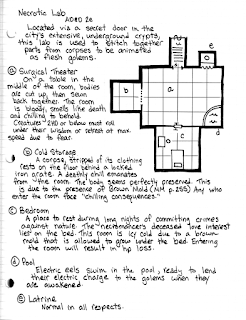 Necrotic Lab
AD&D 2e
Located via a secret door in the
city's extensive, underground crypts,
this lab is used to stitch together
parts from corpses to be animated
as flesh golems.
a Surgical Theater
On a table in the
middle of the room, bodies
are cut up, then sewn
back together. The room
is bloody, smells like death
and chilling to behold.
Creatures 2HD or below must roll
under their Wisdom or retreat at max
speed due to fear.
b Cold Storage
A corpse, stripped of its clothing
rests on the floor behind a locked
iron grate. A deathly chill emanates
from the room. The body seems perfectly preserved. This
is due to the presence of Brown Mold (MM p. 255) Any who
enter the room face "chilling consequences."
c Bedroom
A place to rest during long nights of committing crimes
against nature. The necromancer's deceased love interest
lies on the bed. This room is icy cold due to a brown
mold that is allowed to grow under the bed. Entering
the room will result in hp loss.
d Pool
Electric eels swim in the pool, ready to lend
their electric charge to the golems when they
are awakened.
e Latrine
Normal in all respects.
a
b
c
d
e